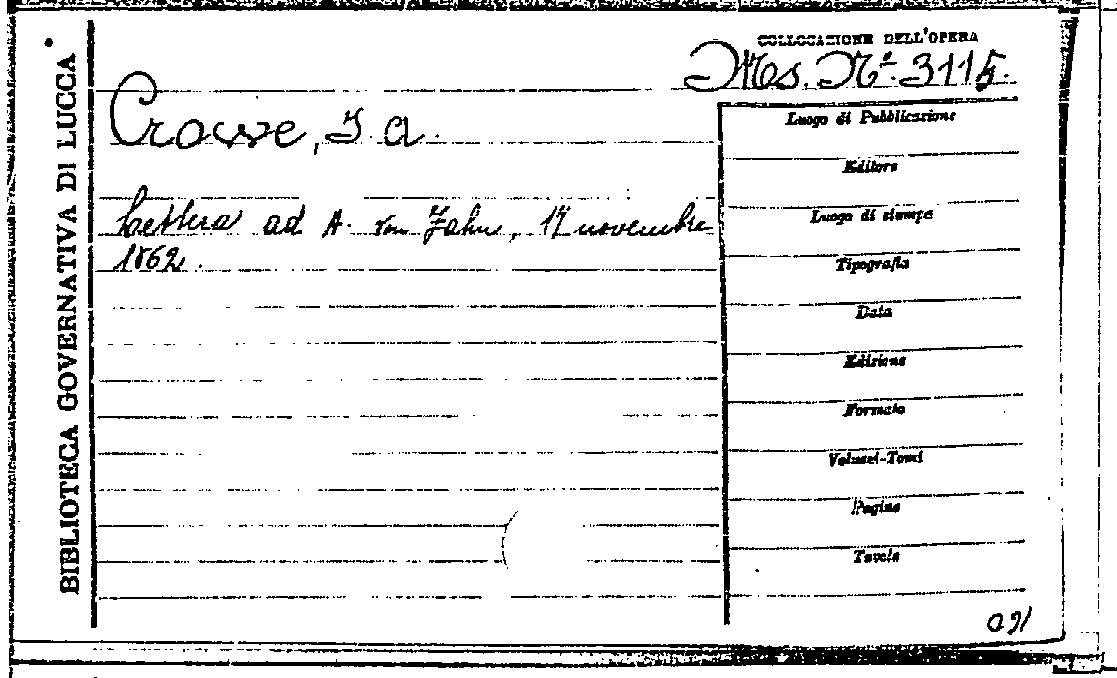 BIBLIOTECA GOVERNATIVA DI LUCCA
COLLOCAZIONE DELL'OPERA
Ms. Nº. 3115.
Crowe, J. A.
Lettera ad A. von Zahn, 17 novembre
1862.
Luogo di Pubblicazione
Editore
Luogo di stampa
Tipografia
Data
Edizione
Formato
Volumi-Tomi
Pagine
Tavole